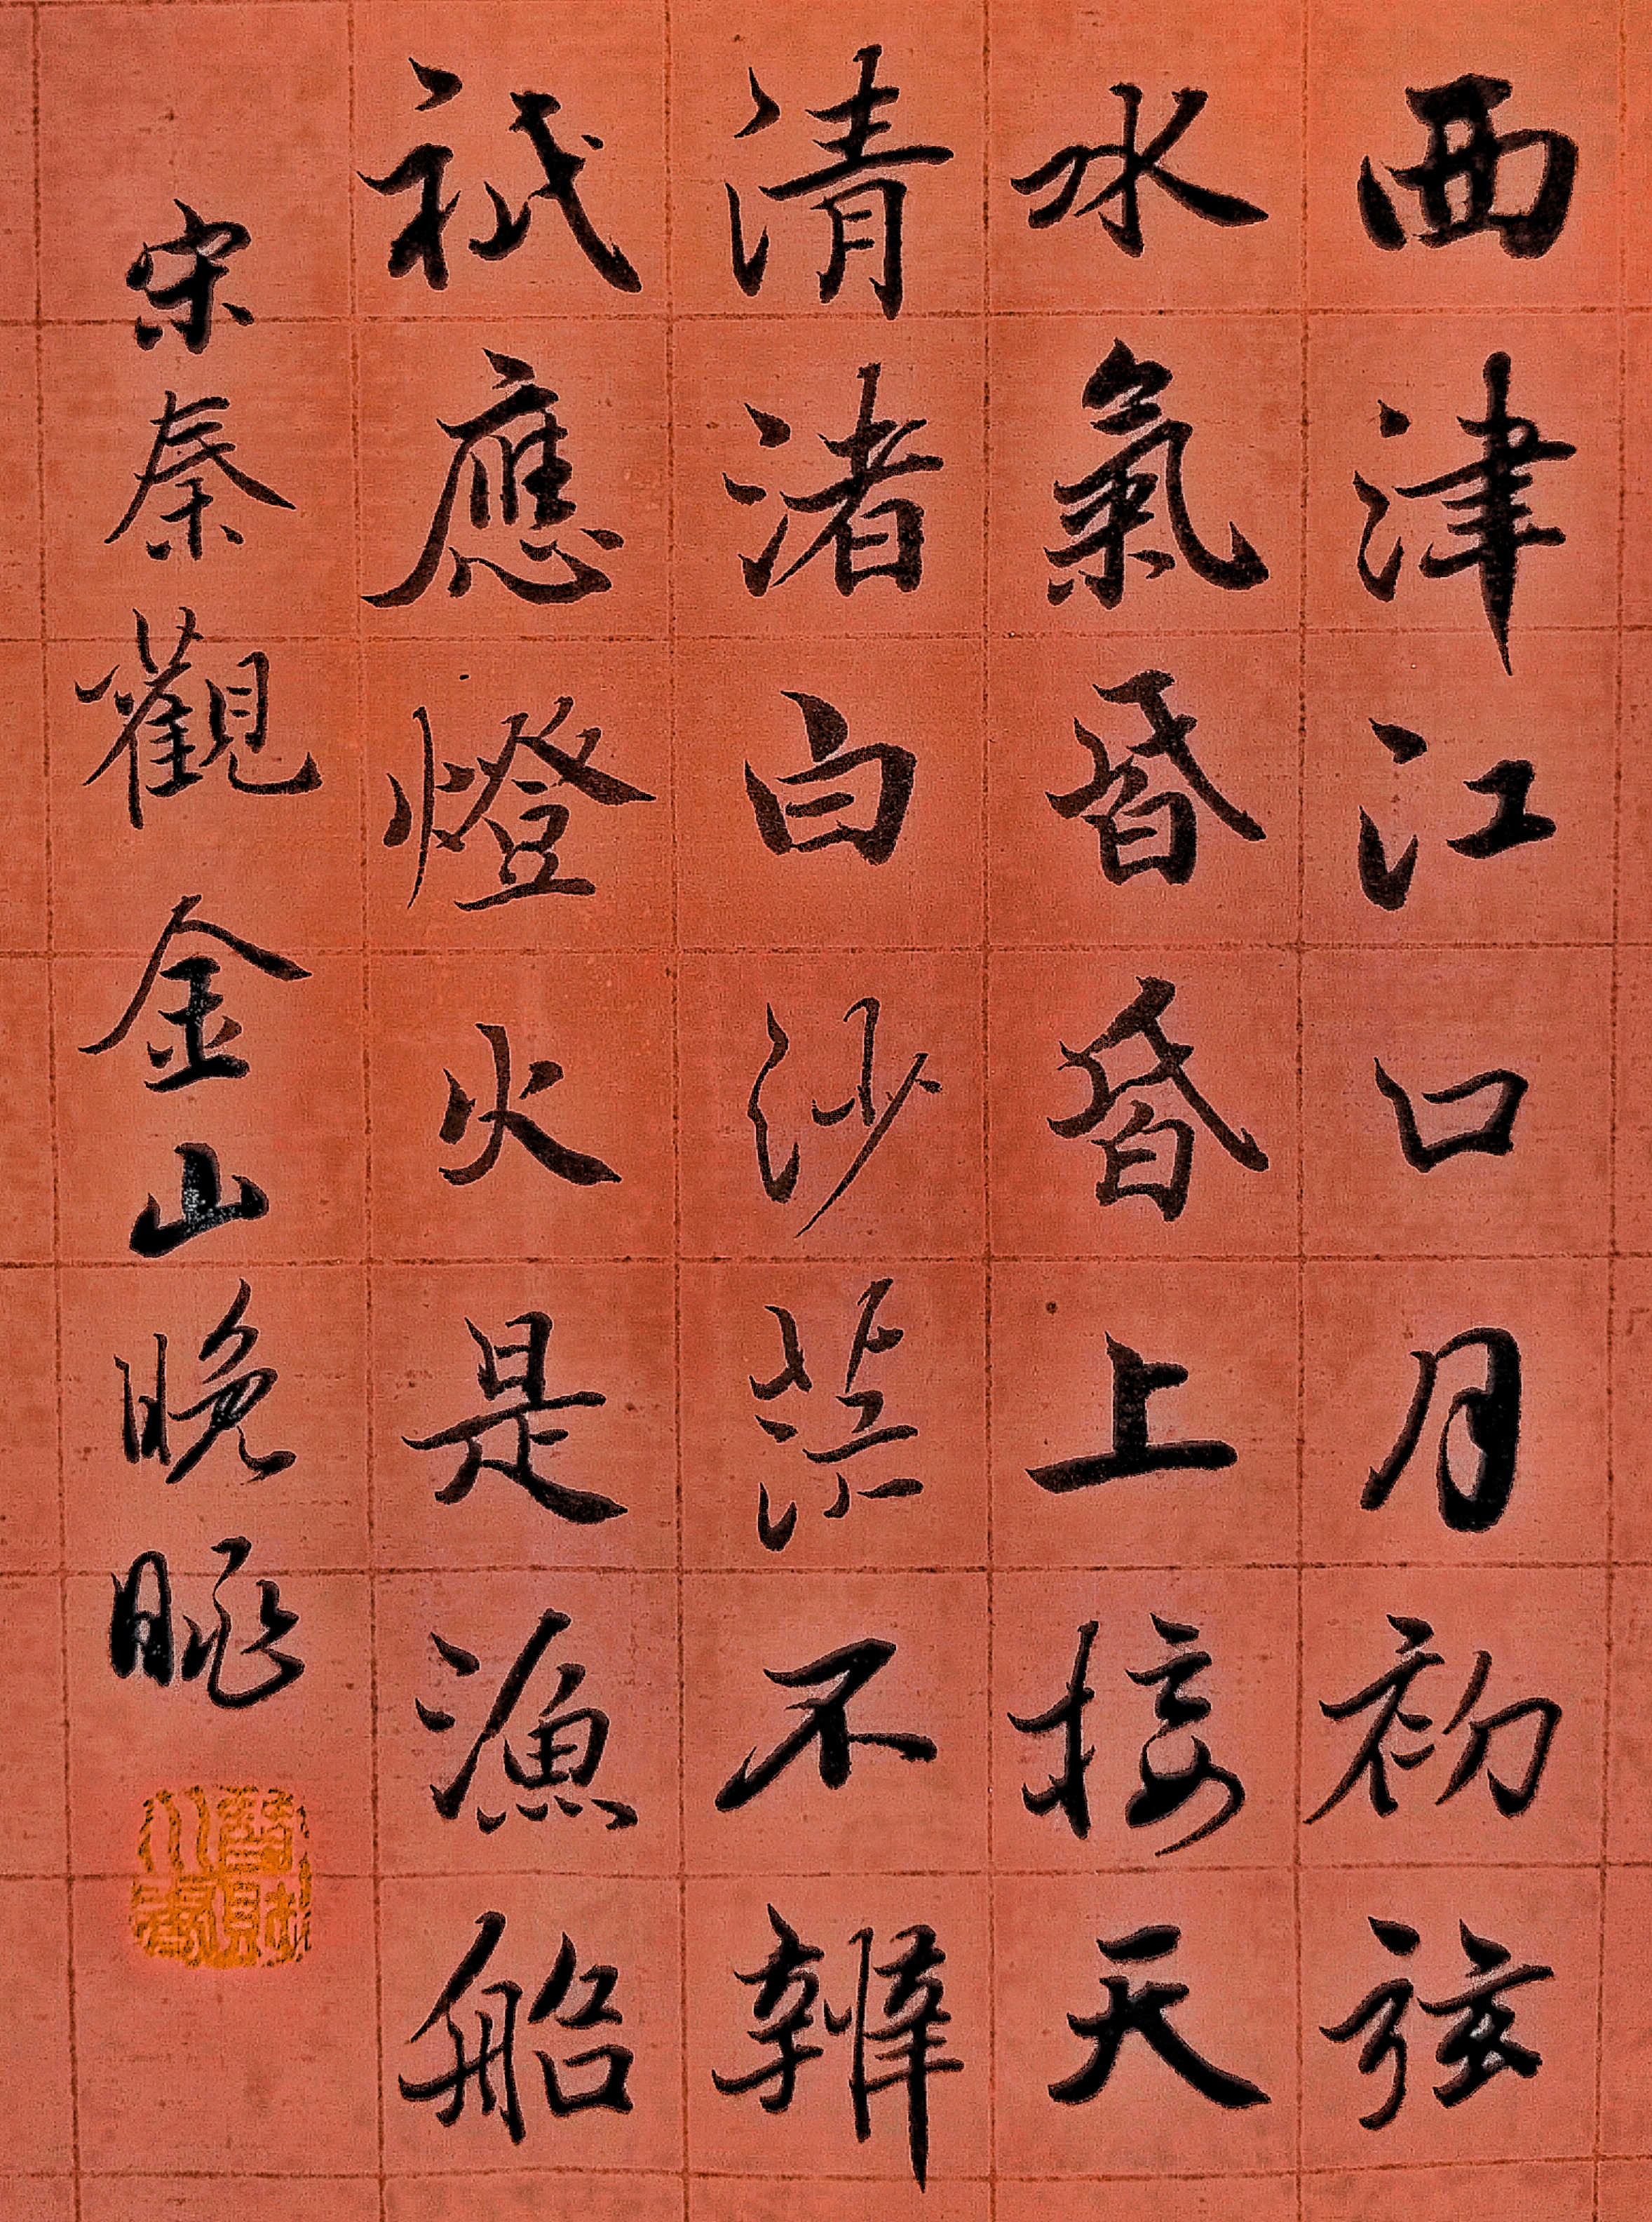 西津江口月初弦
水氣昏昏上接天
清渚白沙茫不辨
祇應燈火是漁船
宋秦觀金山晚眺